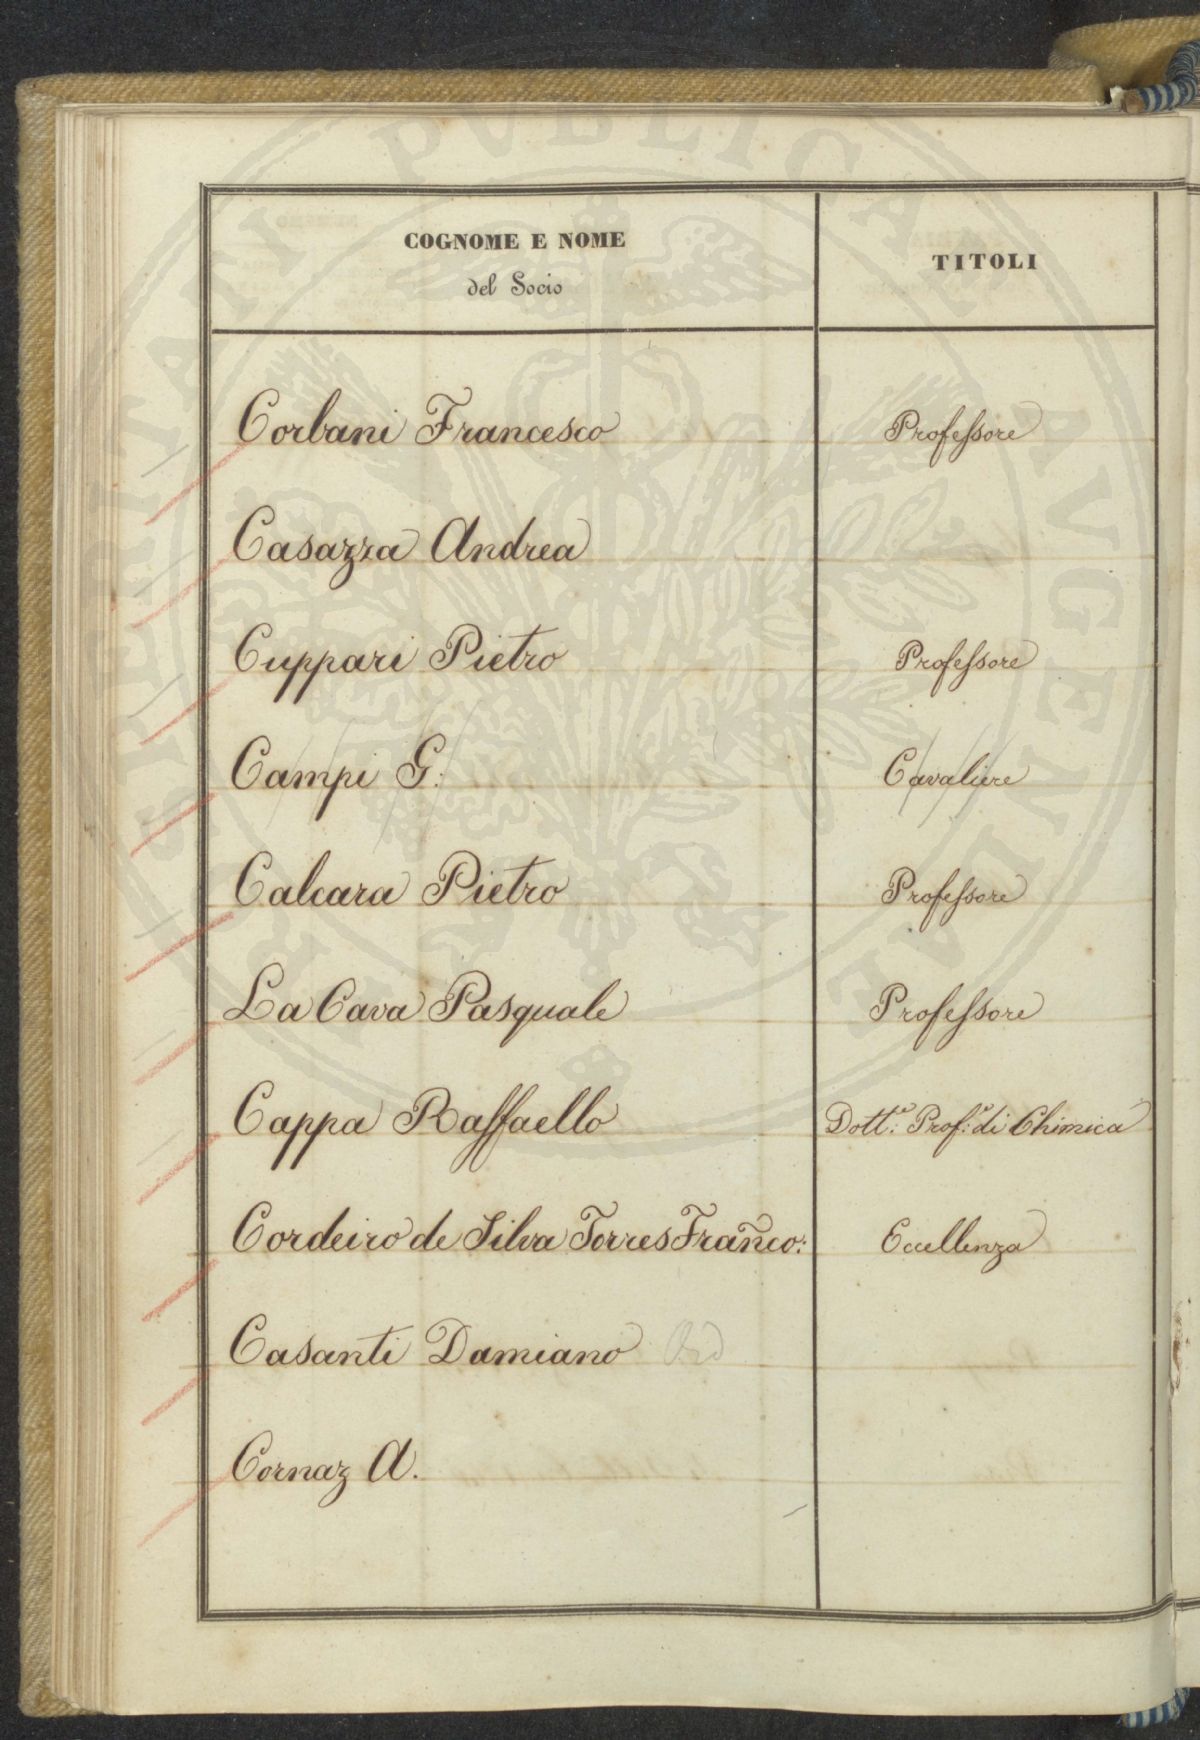 COGNOME E NOME
del Socio
TITOLI
Corbani Francesco Professore
Casazza Andrea
Cuppari Pietro Professore
Campi G: Cavaliere
Calcara Pietro Professore
La Cava Pasquale Professore
Cappa Raffaello Dott.e: Prof.e: di Chimica
Cordeiro de Silva Torres Frañco: Eccellenza
Casanti Damiano Ord
Cornaz A.